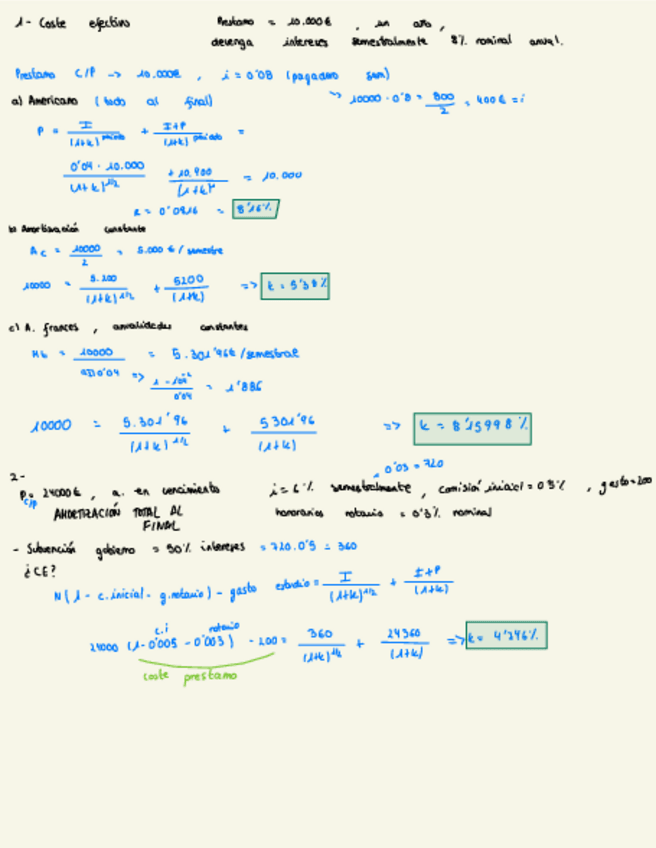 1- Coste efectivo Prestamo = 10.000€ , un año,
devenga intereses semestralmente 8% nominal anual.
Prestamo C/P -> 10.000€ , i = 0'08 (pagadero sem)
-> 10000 · 0'8 = 800/2 = 400€ = i
a) Americano (todo al final)
P = I/(1+k) + I+P/(1+k) =
0'04 · 10.000/(1+k)^1/2 + 10.400/(1+k)^1 = 10.000
k = 0'0816 = 8'16%
b) Amortización constante
Ac = 10000/2 = 5.000 €/semestre
10000 = 5.400/(1+k)^1/2 + 5200/(1+k) => k =
c) A. frances, anualidades constantes
= 10000/a 0'04 = 5.301'96€/semestral
=> 1 - 1'04^-2/0'04 = 1'886
10000 = 5.301'96/(1+k)^1/2 + 5301'96/(1+k) => k = 8'15998%
2-
0'03 = 720
P = 24000€, a. en vencimiento i = 6% semestralmente, comisión inicial = 0'5%, gasto = 200
C/P AMORTIZACIÓN TOTAL AL honorarios notario = 0'3% nominal
FINAL
- Subvención gobierno = 50% intereses = 720·0'5 = 360
¿CE?
N(1 - c.inicial - g.notario) - gasto estudio = I/(1+k)^1/2 + I+P/(1+k)
c.i notario
24000 (1-0'005 - 0'003) - 200 = 360/(1+k)^1/2 + 24360/(1+k) => k = 4'246%
coste prestamo